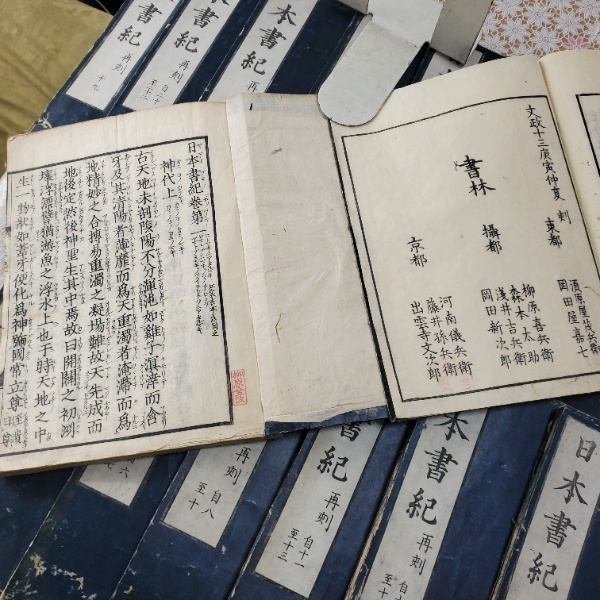 文政十三庚寅仲夏 刻
書林
東都
須原屋茂兵衛
岡田屋嘉七
攝都
柳原喜兵衛
森本太助
浅井吉兵衛
岡田新次郎
河南儀兵衛
京都
藤井孫兵衛
出雲寺文次郎
日本書紀卷第一
神代上
古天地未剖陰陽不分渾沌如雞子溟涬而含
牙及其清陽者薄靡而爲天重濁者淹滯而爲
地精妙之合搏易重濁之凝場難故天先成而
地後定然後神聖生其中焉故曰開闢之初洲
壤浮漂譬猶游魚之浮水上也于時天地之中
生一物狀如葦牙便化爲神號國常立尊
至貴
曰尊
本書紀 再刻
書紀 再刻
書紀 再刻 十九
日本書紀
本書紀 再刻
書紀 再刻 自十一 至十三
紀 再刻 自八 至十